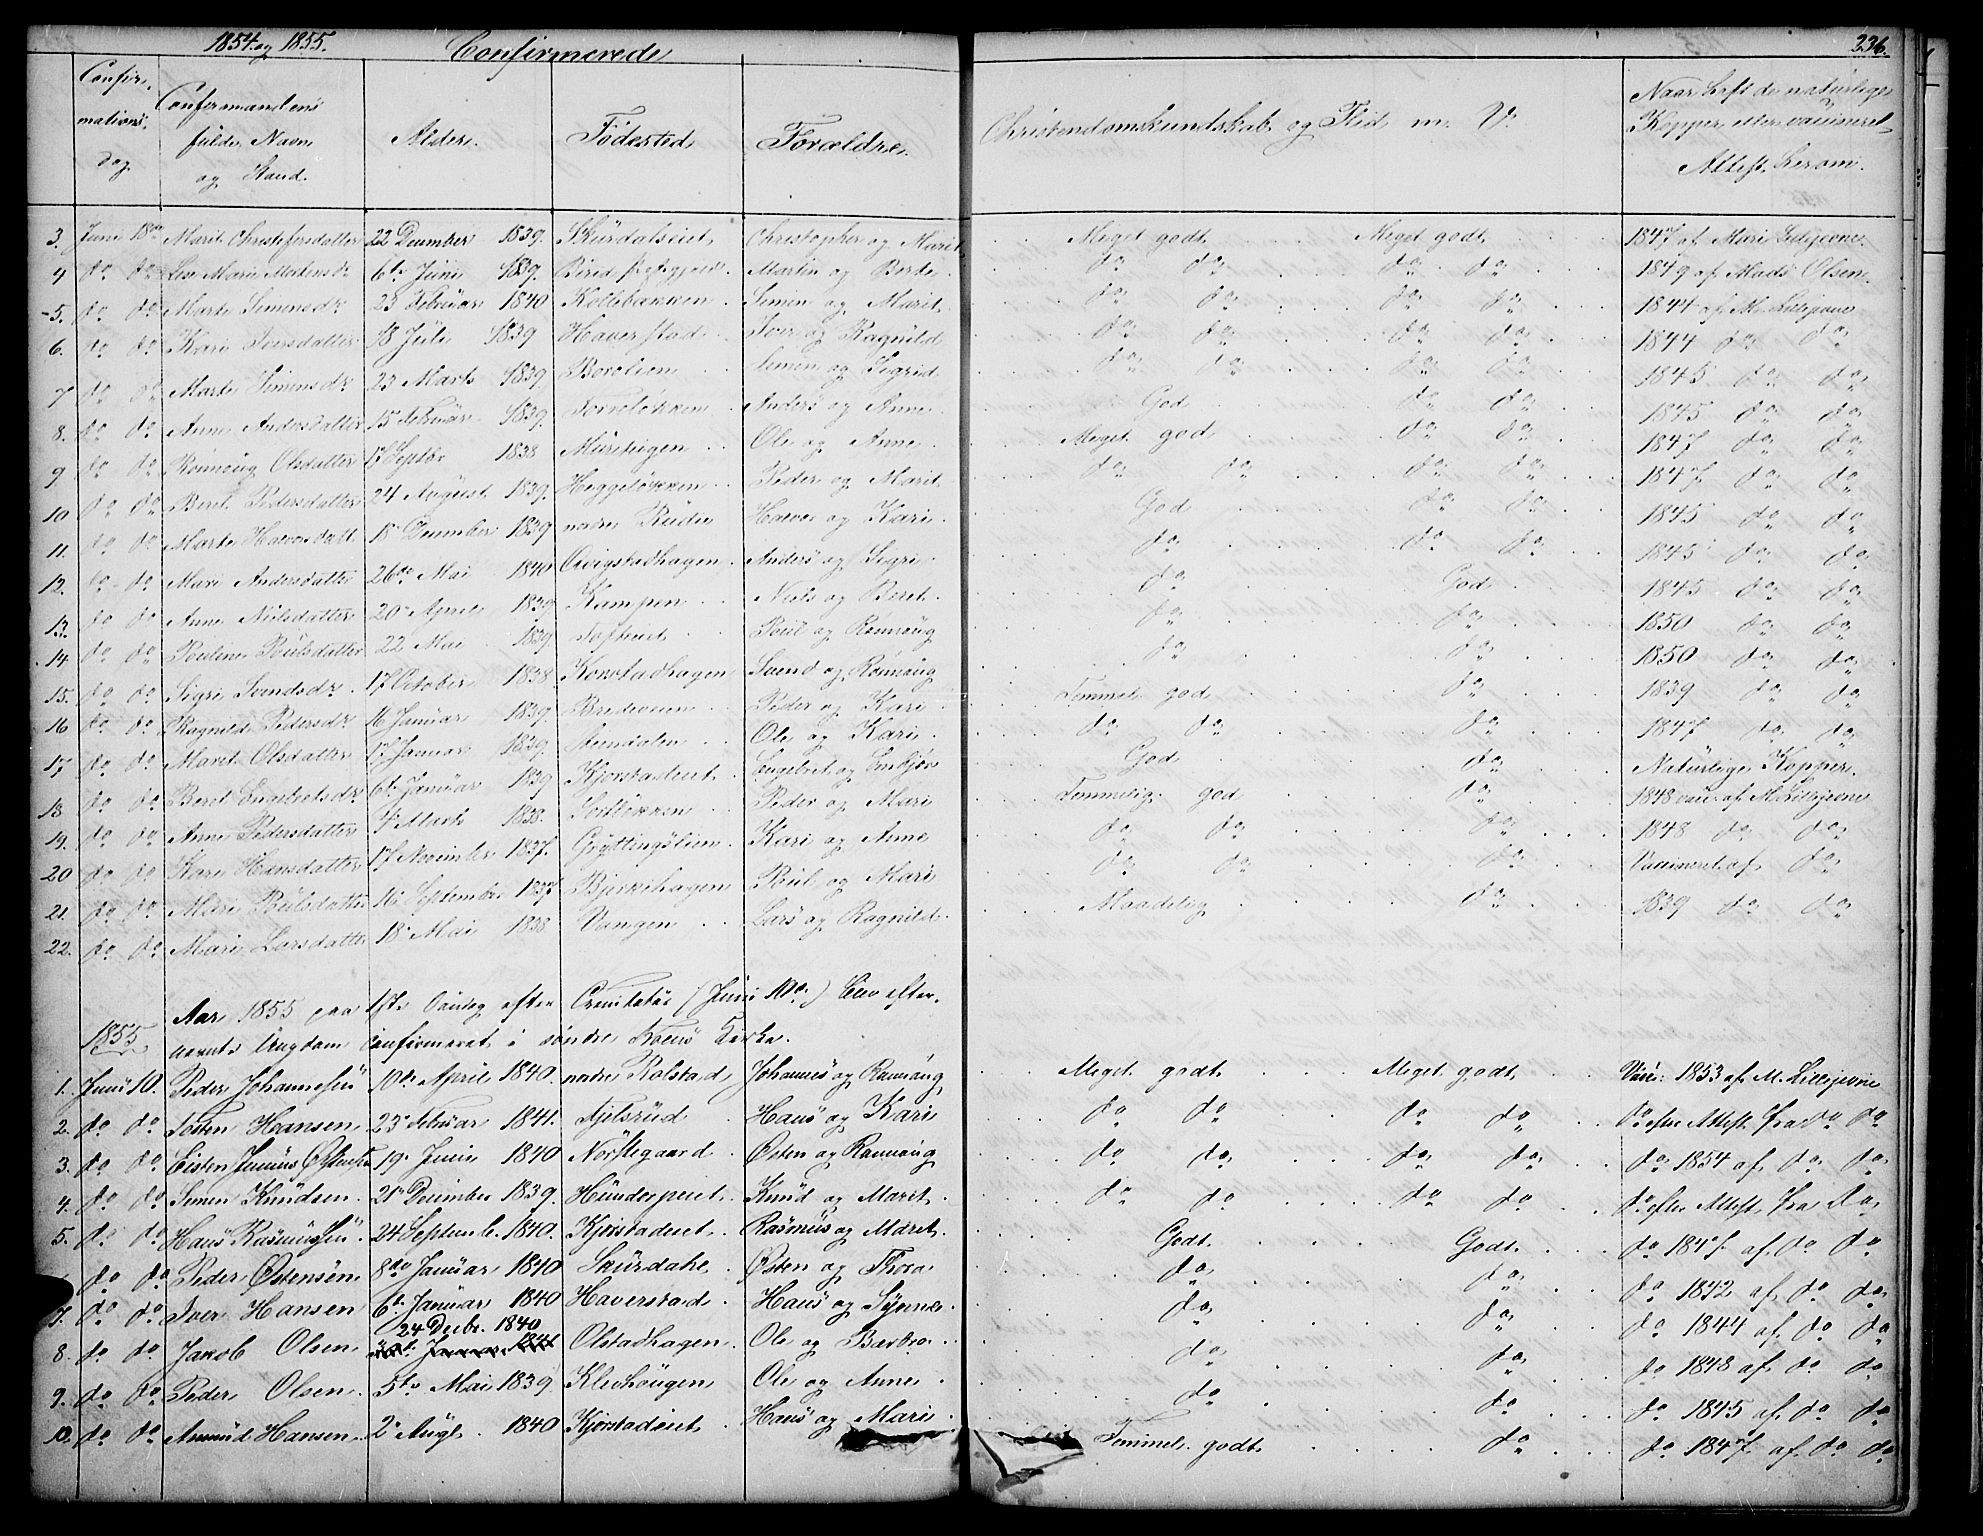 1854 og 1855.
Confirmerede
236.
Confir-
mations-
dag
Confirmandens
fulde Navn
og Stand.
Alder.
Födested
Forældre.
Christendomskundskab og Flid m. V.
Naar havt de naturlige
Kopper eller vaccineret
Attest herom.
3. Juni 18de Marit Christofersdatter 22 December 1839. Skurdalseiet Christopher og Marit Meget godt Meget godt 1847 af Mari Lillejevne
4 do do Lise Marie Martinsdr 6te Juni 1839. Birid Martin og Berte do do do do 1849 af Mads Olsen
5. do do Marte Simensdr 23 Februar 1840 Kollebækken Simen og Marit do do do do 1844 af M. Lillejevne
6. do do Kari Iversdatter 18 Juli 1839 Haverstad Iver og Ragnild do do do do 1844 do do
7 do do Marte Simensdr 23 Marts 1839 Borolien Simen og Sigrid do do do do 1845 do do
8. do do Anne Andersdatter 15 Februar 1839. Anders og Anne God do do 1845 do do
9 do do Rönnoug Olsdatter 17 Septbr 1838 Murihigen Ole og Anne Meget god do do 1847 do do
10 do do Beret Pedersdatter 24 August 1839. Heggelökken Peder og Marit do do do do 1847 do do
11. do do Marte Halvorsdatt. 18 December 1839 nordre Rudie Halvor og Kari God do do 1845 do do
12. do do Mari Andersdatter 26de Mai 1840 Anders og Sigri do do do 1845 do do
13. do do Anne Nielsdatter 20 April 1839 Kampen Niels og Beret do God 1845 do do
14. do do Pouline Poulsdatter 22 Mai 1839 Tofteeiet Poul og Rönnoug do do 1850 do do
15. do do Sigri Svendsdr. 17 October 1838 Konstadhagen Svend og Rönnoug do do 1850 do do
16 do do Ragnild Pedersdr 16 Januar 1839. Bredeveien Peder og Kari Temmel. god do 1839 do do
17 do do Marit Olsdatter 17 Januar 1839. Ole og Kari do do do 1847 do do
18 do do Beret Engebretsdr 6te Januar 1839 Kjorstadeiet Engebret og Embjör God do Naturlige Kopper.
19. do do Anne Pedersdatter 4 Marts 1838. Peder og Mari Temmelig god do 1848 vacc. af M. Lillejevne
20 do do Kari Hansdatter 17 November 1837. Gryttingslien Kari og Anne do do do 1848 do do
21. do do Mari Poulsdatter 16 September 1837 Bjerkehagen Poul og Mari do do do Vaccineret af do
22. do do Mari Larsdatter 18 Mai 1838 Vangen Lars og Ragnild Maadelig do 1839 do do
Aar 1855 paa 1ste Söndag efter Trinitatis (Juni 10de) blev efter-
1855 nævnte Ungdom confirmeret i söndre Froens Kirke.
1. Juni 10. Peder Johannesen 10de April 1840. nordre Rolstad Johannes og Rönnoug Meget godt Meget godt Vacc: 1853 af M. Lillejevne
2. do do Tosten Hansen 23 Februar 1841. Fjelsrud Hans og Kari do do do do do efter Attest fra do do
3. do do Eisten Junius Östensen 19 Juni 1840 Nörstegaard Østen og Rannoug do do do do do 1854 af do do
4. do do Simen Knudsen. 21 December 1839. Hunderpeiet Knud og Marit. do do do do do efter Attest fra do
5. do do Hans Rasmussen 24 September 1840. Kjorstadeiet Rasmus og Marit. Godt Godt do 1847 af do do
do do Peder Østensen. 8de Januar 1840 Skurdahl Østen og Thora do do do 1842 af do do
7. do do Iver Hansen 6te Januar 1840 Haverstad Hans og Synnev do do do 1844 af do do
24 Decbr. 1840
8. do do Jakob Olsen Januar 1841 Olstadhagen Ole og Barbro do do do 1848 af do do
9. do do Peder Olsen. 5te Mai 1839 Klevhougen Ole og Anne do do do 1845 af do do
10. do do Amund Hansen 2 Augt. 1840 Kjorstadeiet Hans og Mari Temmel. godt do do 1847 af do do